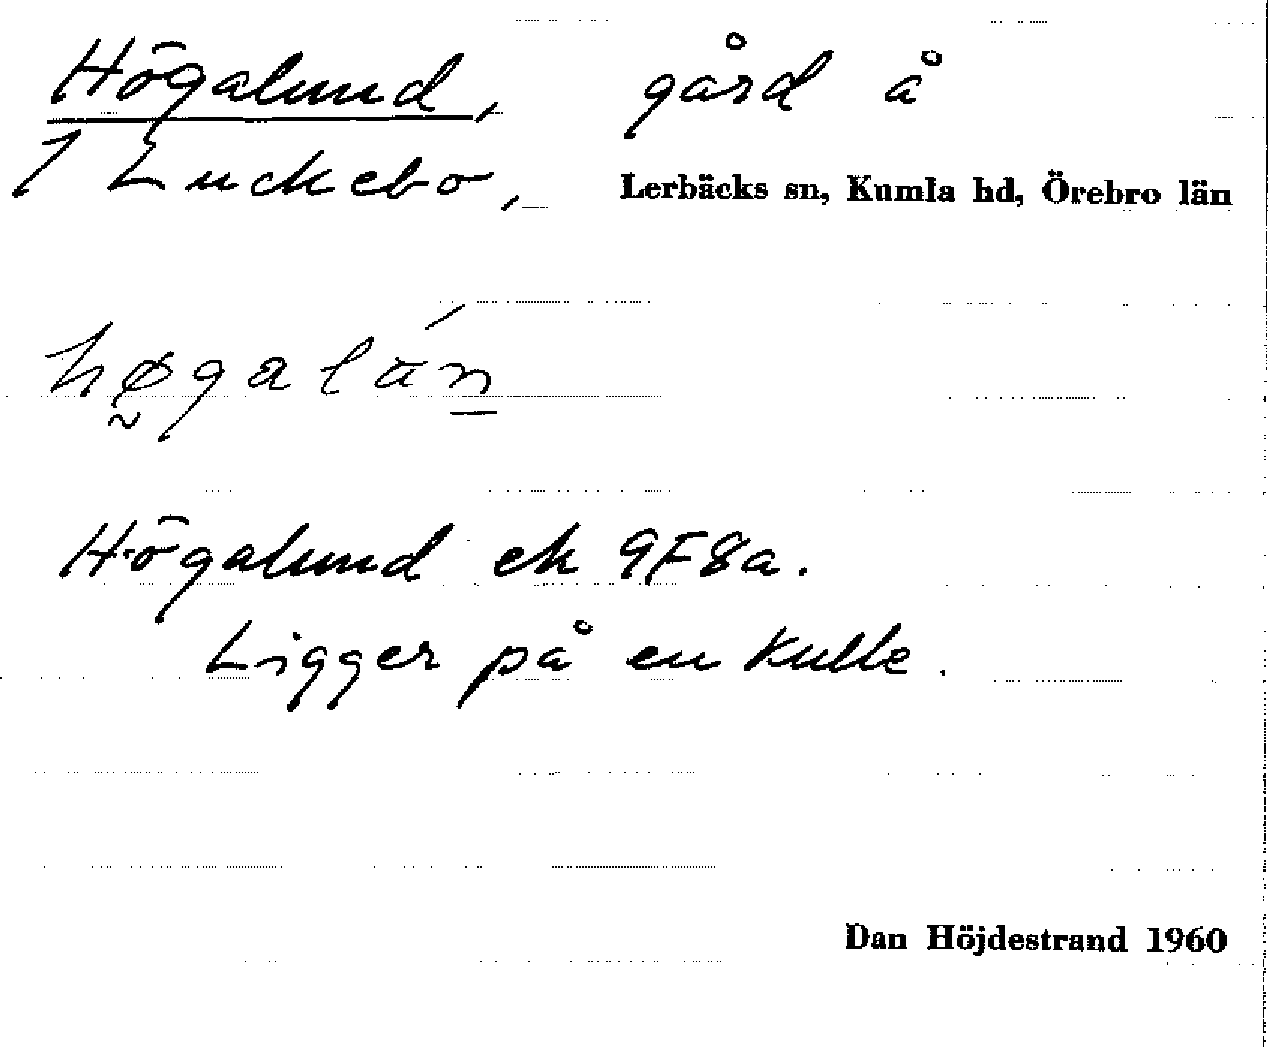 Högalund, gård å
1 Luckebo, Lerbäcks sn, Kumla hd, Örebro län
hø̰galán̲
Högalund ek 9F8a.
Ligger på en kulle.
Dan Höjdestrand 1960